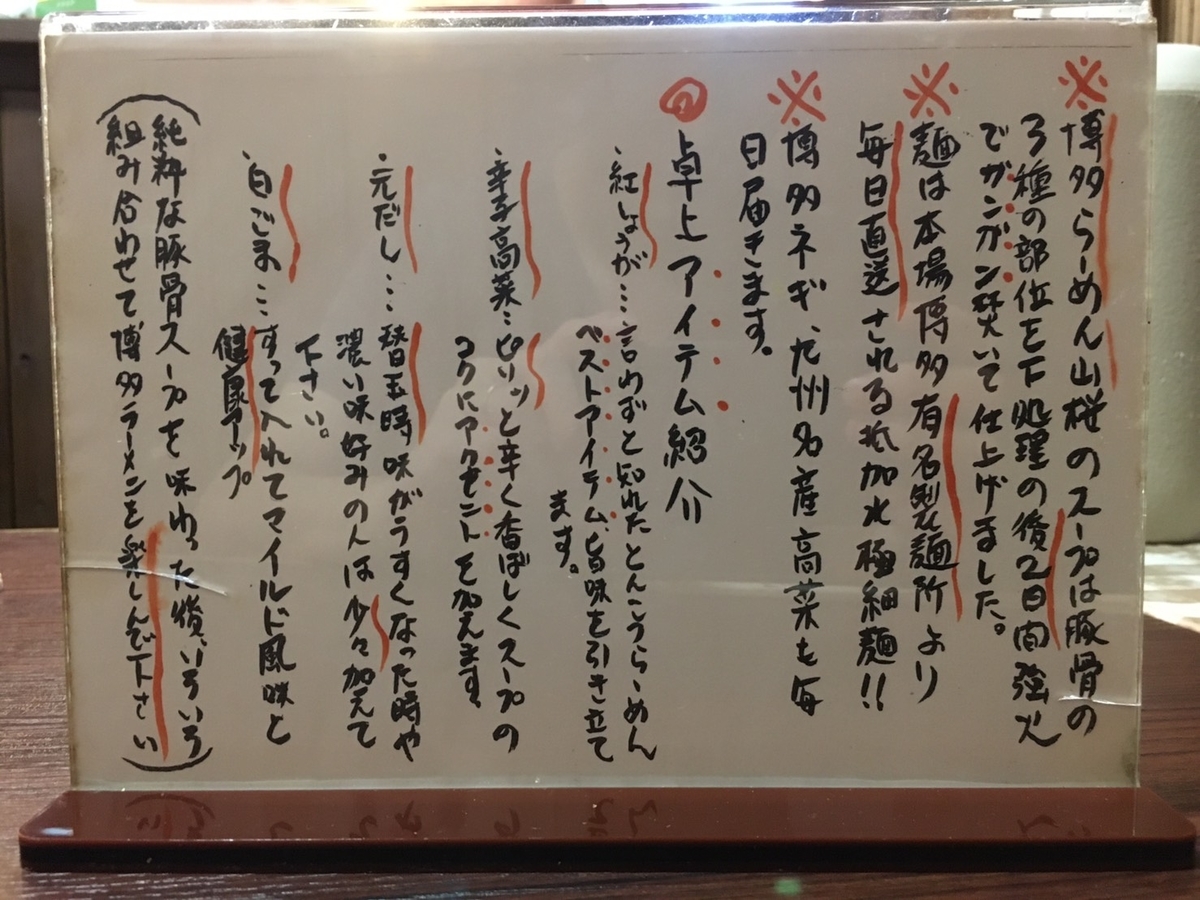 ※博多らーめん山桜のスープは豚骨の
3種の部位を下処理の後2日間強火
でガンガン焚いて仕上げました。
※麺は本場博多有名製麺所より
毎日直送される低加水極細麺!!
※博多ネギ、九州名産高菜も毎
日届きます。
卓上アイテム紹介
紅しょうが…言わずと知れたとんこつらーめん
ベストアイテム、旨味を引き立て
ます。
辛子高菜…ピリッと辛く香ばしくスープの
コクにアクセントを加えます。
元だし…替玉時、味がうすくなった時や
濃い味好みの人は少々加えて
下さい。
白ごま…すって入れてマイルド風味と
健康アップ
(純粋な豚骨スープを味わった後、いろいろ
組み合わせて博多ラーメンを楽しんで下さい)